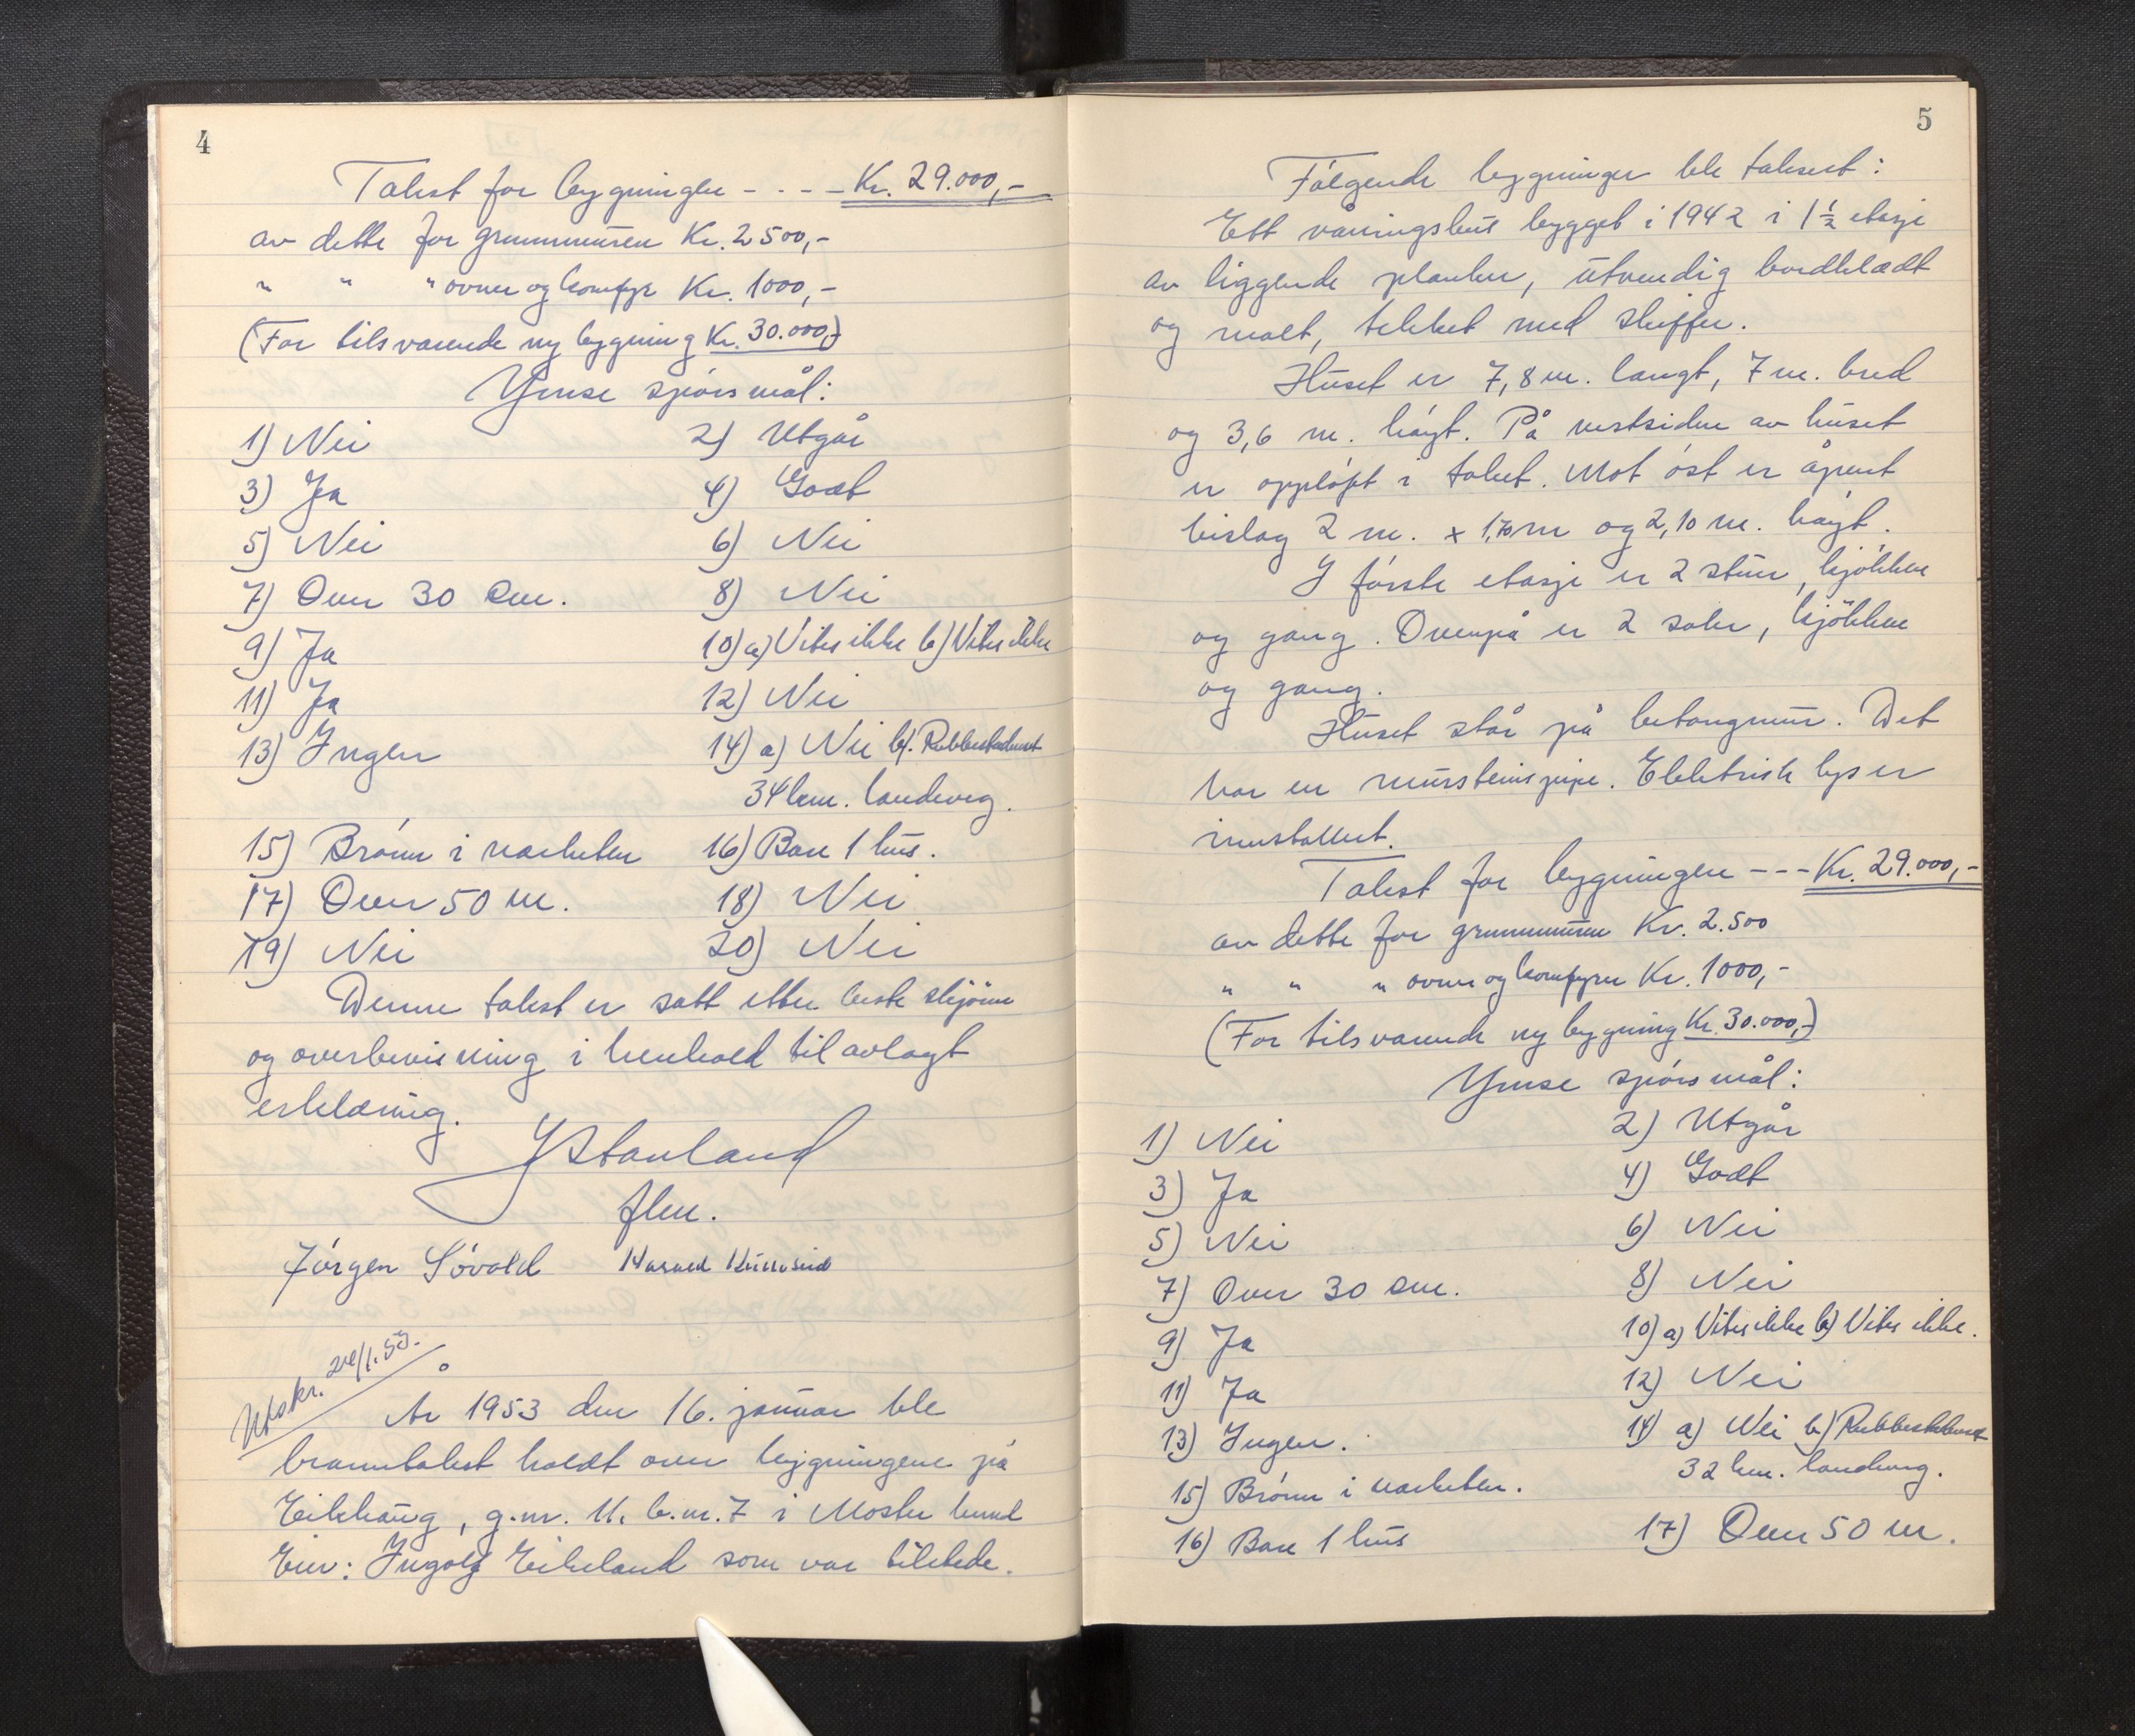 4
Takst for bygningen - - - - Kr. 29.000,-
av dette for grunnmuren Kr. 2500,-
" " " ovner og komfyr Kr. 1000,-
(For tilsvarende ny bygning Kr. 30.000,-)
Ymse spörsmål:
1) Nei 2) Utgår
3) Ja 4) Godt
5) Nei 6) Nei
7) Over 30 cm. 8) Nei
9) Ja 10) a) Vites ikke b) Vites ikke
11) Ja 12) Nei
13) Ingen 14) a) Nei b). Rubbestadneset
34 km. landeveg.
15) Brönn i närheten 16) Bare 1 hus.
17) Over 50 m. 18) Nei
19) Nei 20) Nei
Denne takst er satt etter beste skjönn
og overbevisning i henhold til avlagt
erklæring.
J Stauland
flm.
Jörgen Lövold Harald
Utskr. 24/1.53.
År 1953 den 16. januar ble
branntakst holdt over bygningene på
Eikhaug, g.nr. 11, b.nr. 7 i Moster herred
Eier: Ingolf Eikeland som var tilstede.
5
Fölgende bygninger ble taksert:
Ett våningshus bygget i 1942 i 1½ etasje
av liggende planker, utvendig bordklædt
og malt, tekket med skiffer.
Huset er 7,8 m. langt, 7 m. bred
og 3,6 m. höyt. På vestsiden av huset
er oppløft i taket. Mot öst er åpent
bislag 2 m. x 1,70 m og 2,10 m. höyt.
I förste etasje er 2 stuer, kjökken
og gang. Ovenpå er 2 saler, kjökken
og gang.
Huset står på betongmur. Det
har en mursteinspipe. Elektrisk lys er
innstallert.
Takst for bygningen - - - Kr. 29.000,-
av dette for grunnmuren Kr. 2.500
" " " ovner og komfyrer Kr. 1000,-
(For tilsvarende ny bygning Kr. 30.000,-)
Ymse spörsmål:
1) Nei 2) Utgår
3) Ja 4) Godt
5) Nei 6) Nei
7) Over 30 cm. 8) Nei
9) Ja 10) a) Vites ikke b) Vites ikke.
11) Ja 12) Nei
13) Ingen. 14) a) Nei b) Rubbestadneset
32 km. landeveg.
15) Brönn i närheten.
16) Bare 1 hus 17) Over 50 m.